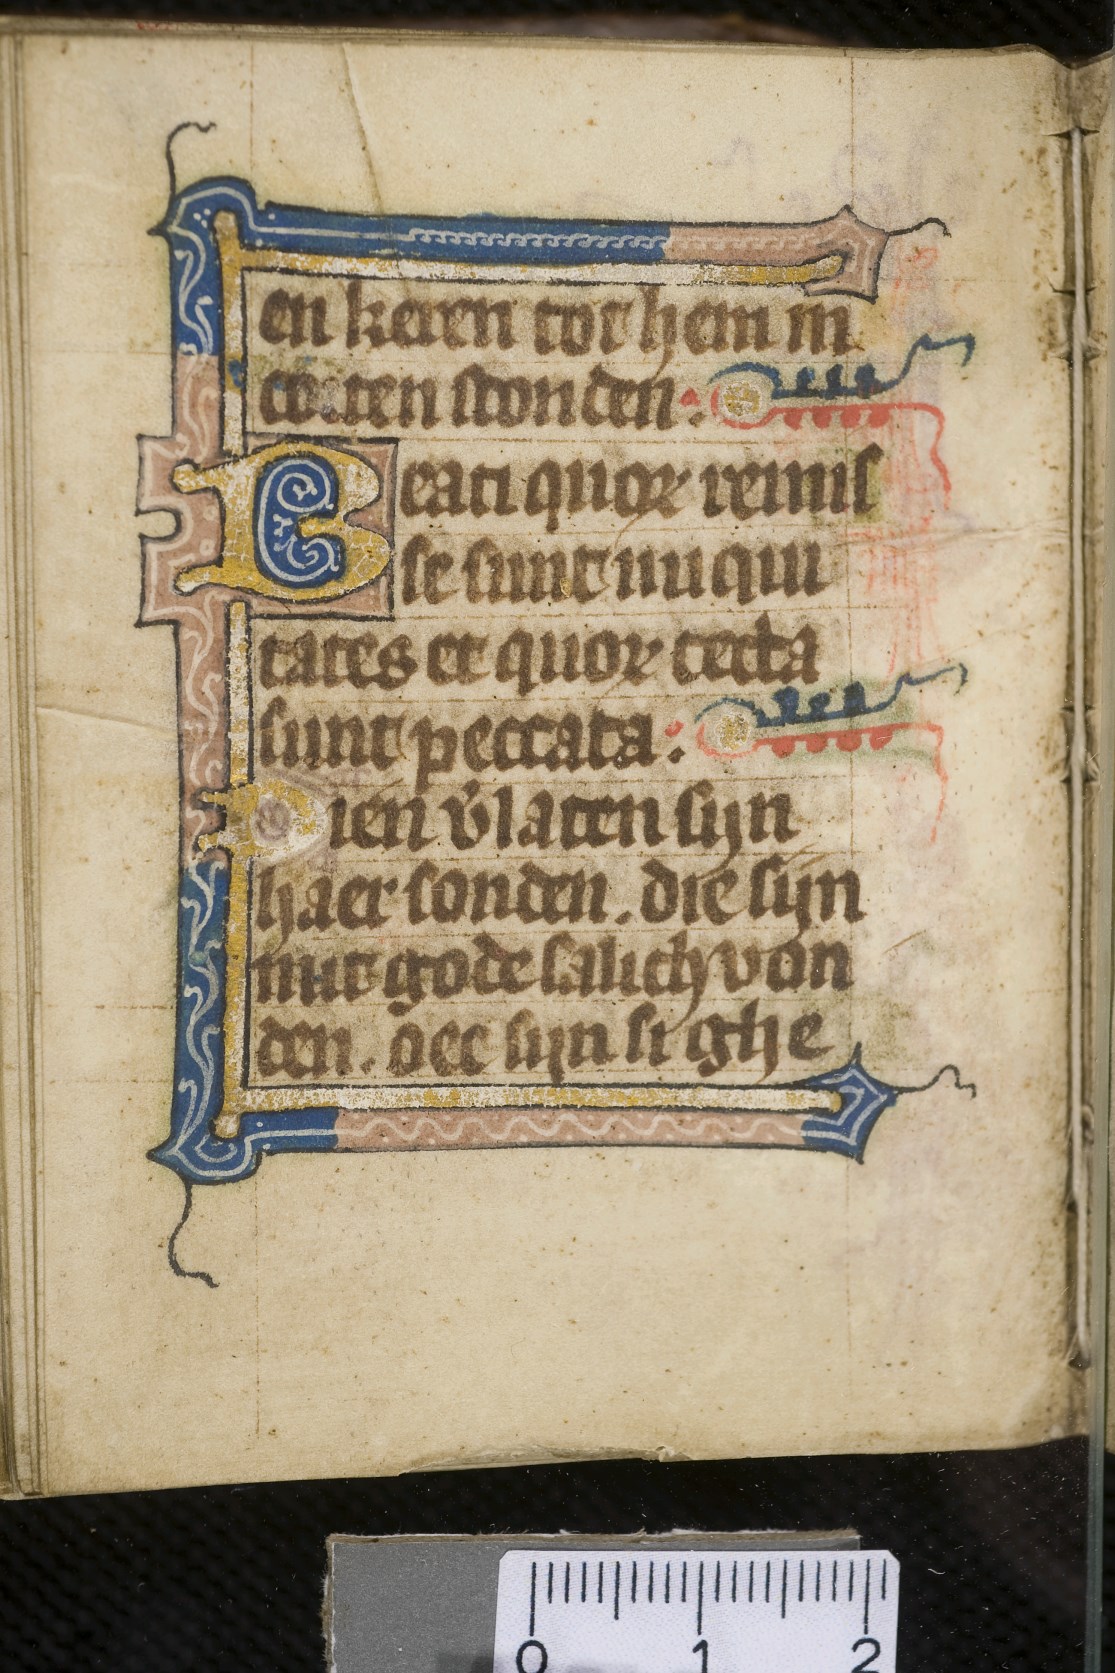 en keren tot hem in
corten stonden:
Beati quor remis
se sunt iniqui
tates et quor tecta
sunt peccata:
Dien v̾laten sijn
haer sonden. die sijn
mit gode salich von
den. oec sijn si ghe
0 1 2